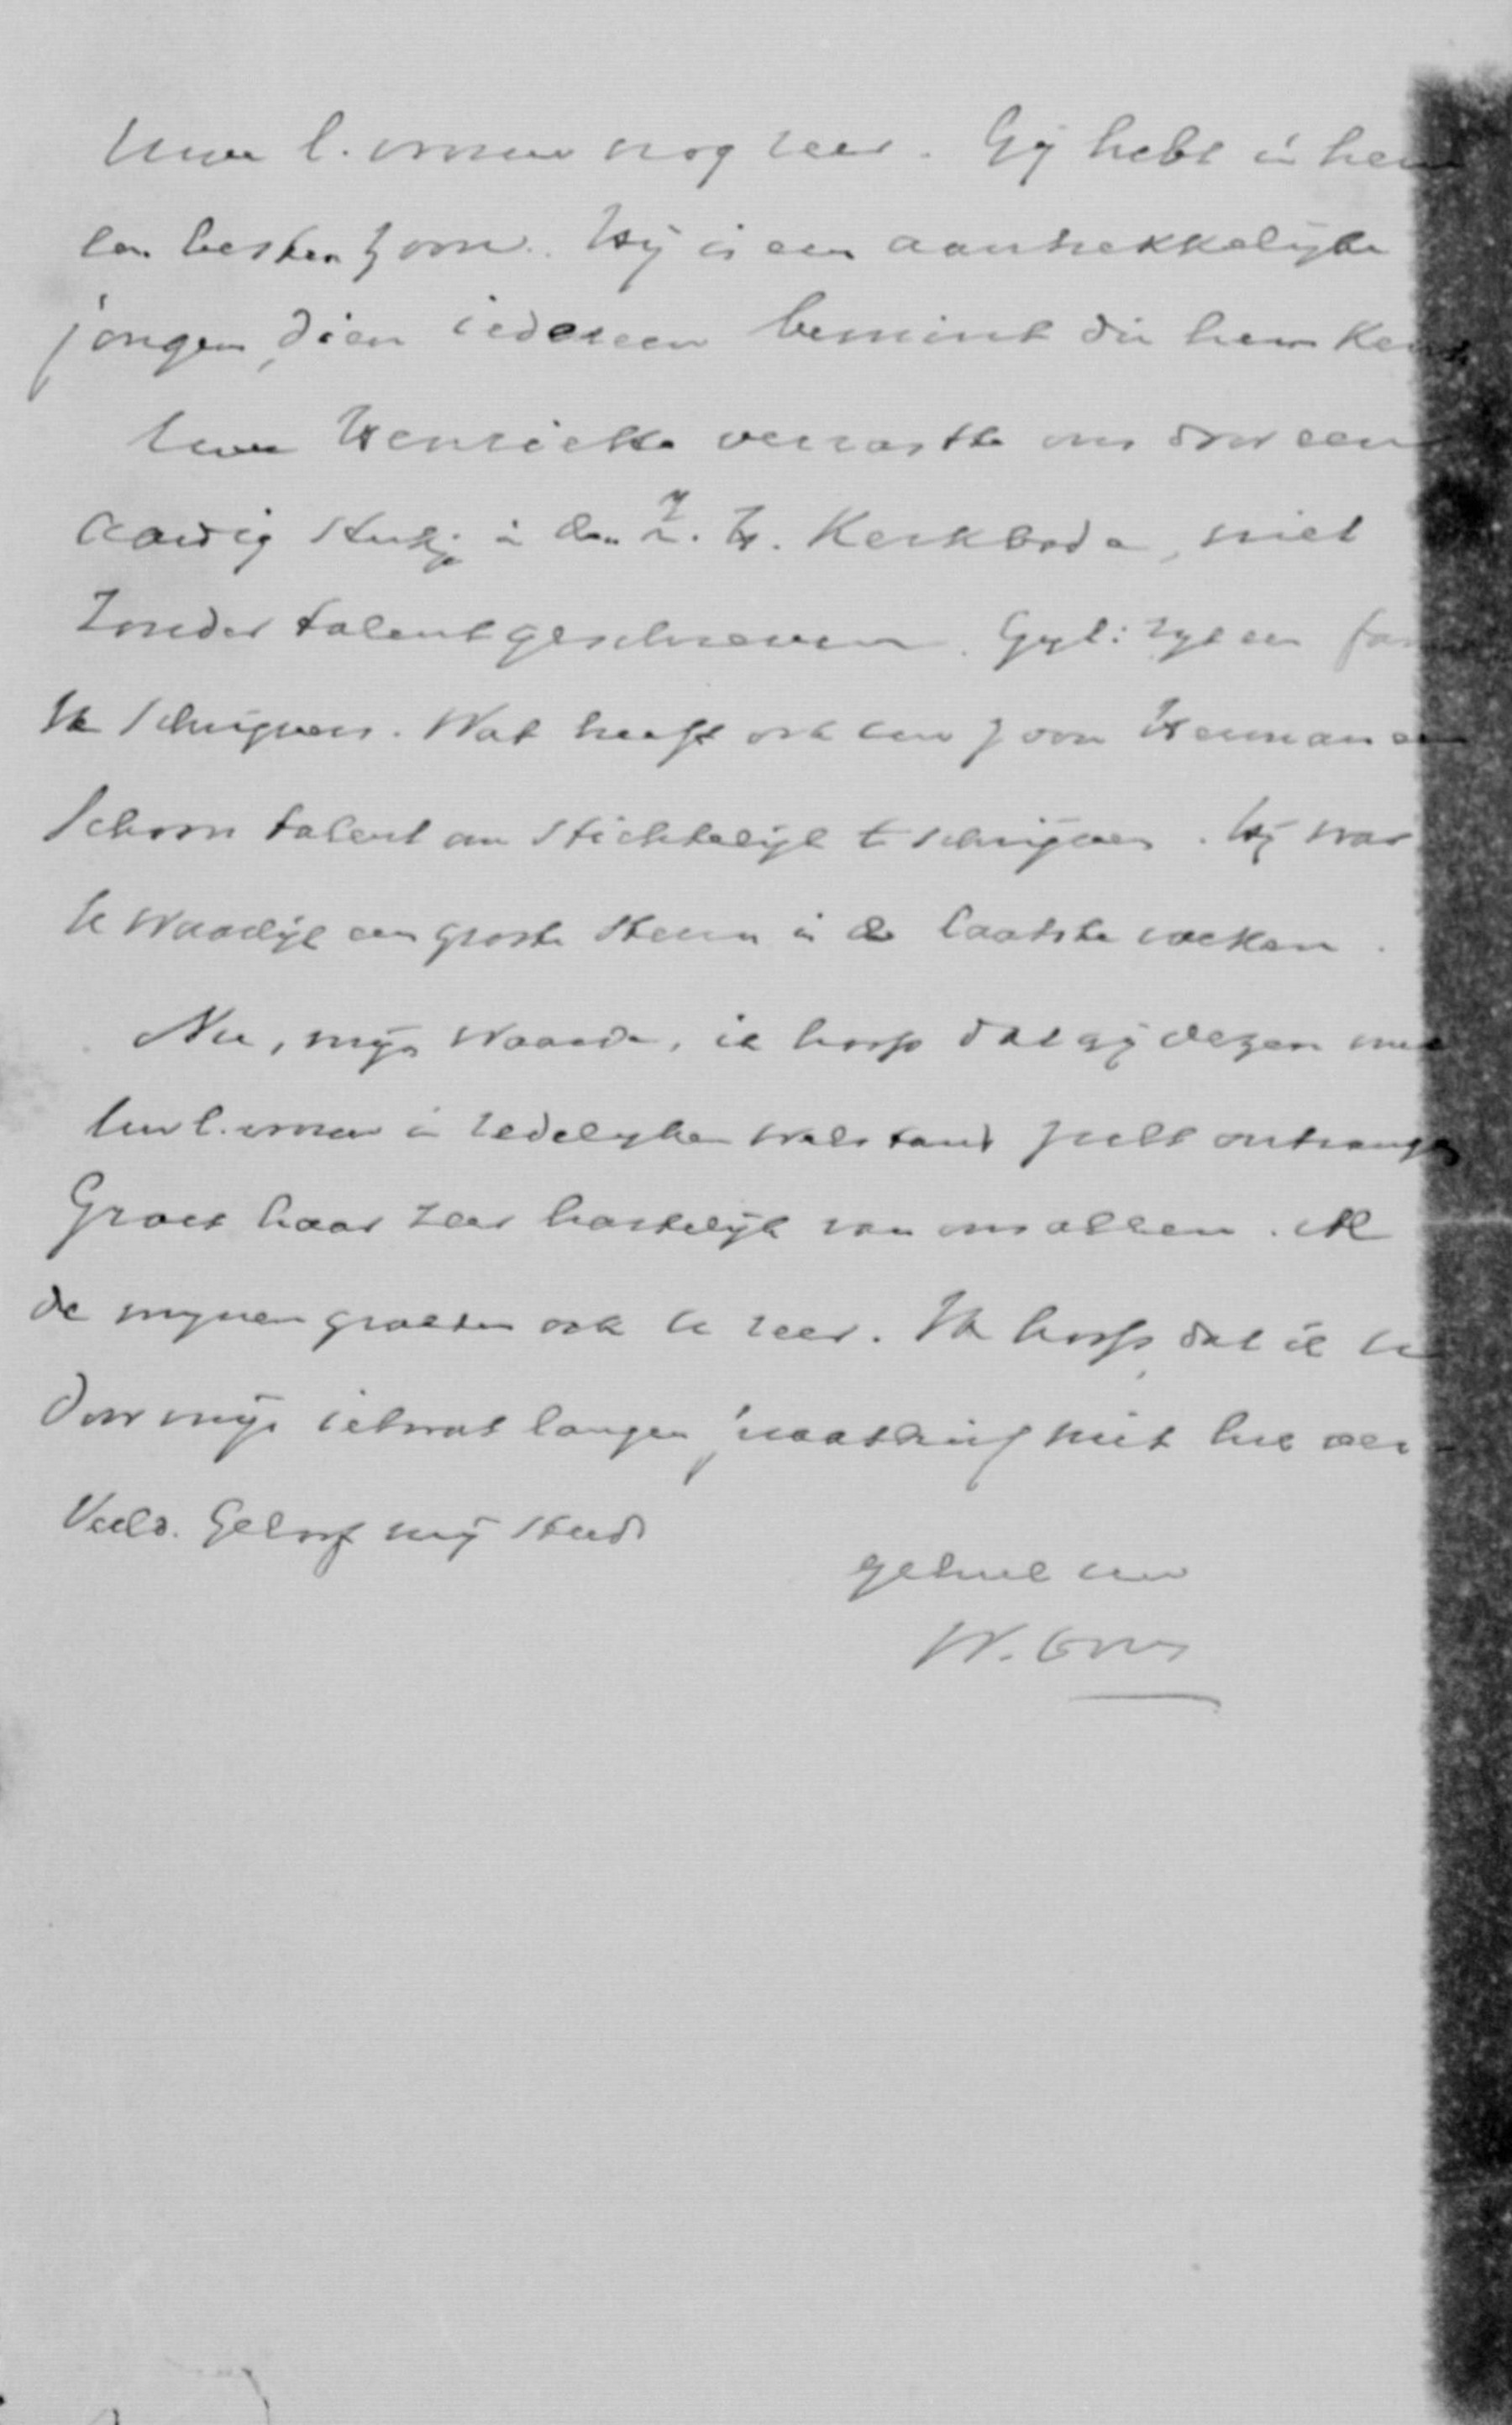 Uwe l. vrouw nog zeer. Gij hebt in hem
een besten zoon. Hij is een aantrekkelijke
jongen, dien iedereen bemint die hem kent
Uwe Henriette verraste ons door een
aardig stukje in den Z. H. Kerkbode, niet
zonder talent geschreven. Gyl: zyt een fam
Schrijvers. Wat heeft ook uw zoon Herman een
schoon talent om stichtelijk te schrijven. Hij was
U waarlijk een groote steun in de laatste weken.
Nu, mijn waarde, ik hoop dat gij dezen met
Uw l. vrouw in redelyken welstand zult ontvangen
Groet haar zeer hartelijk van ons allen. Al
de mynen groeten ook U zeer. Ik hoop, dat ik U
door mijn ietwat langen jaarbrief niet heb ver-
veeld. Geloof mij steeds
geheel uw
W.